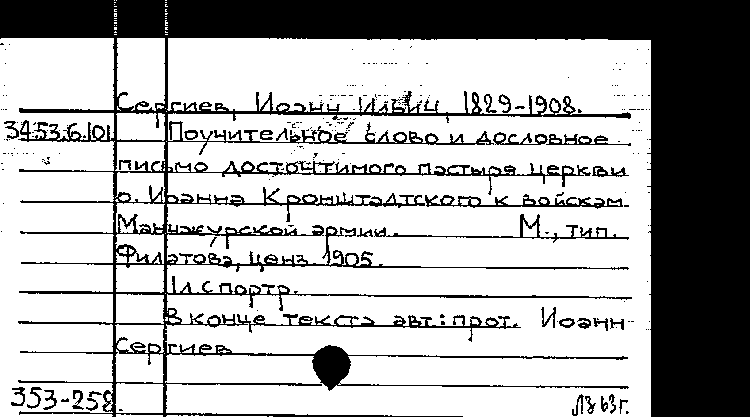 Сергиев, Иоанн Ильич, 1829-1908.
34.53.6.101 Поучительное слово и дословное
письмо досточтимого пастыря церкви
о. Иоанна Кронштадтского к войскам
Манчжурской армии. М., тип.
Филатова, ценз. 1905.
1л с портр.
В конце текста авт: прот. Иоанн
Сергиев
353-258 63г.